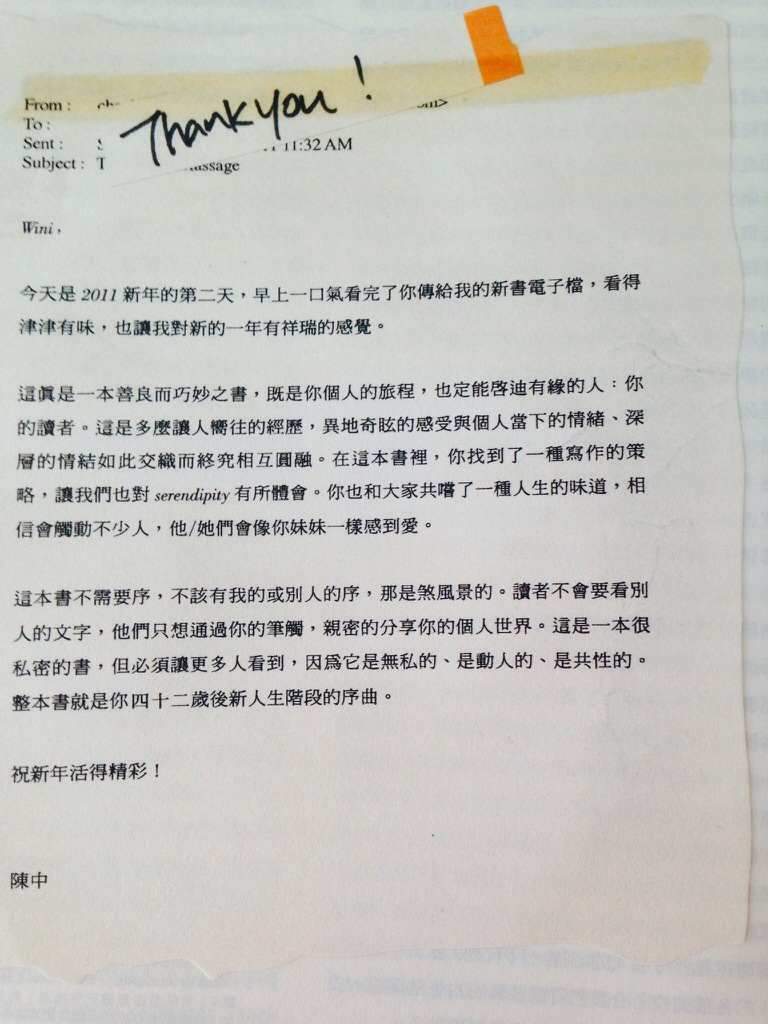 Thank you !
From :
To :
Sent : 11:32 AM
Subject : T
Wini，
今天是 2011 新年的第二天，早上一口氣看完了你傳給我的新書電子檔，看得
津津有味，也讓我對新的一年有祥瑞的感覺。
這眞是一本善良而巧妙之書，既是你個人的旅程，也定能啓迪有緣的人：你
的讀者。這是多麼讓人嚮往的經歷，異地奇眩的感受與個人當下的情緒、深
層的情結如此交織而終究相互圓融。在這本書裡，你找到了一種寫作的策
略，讓我們也對 serendipity 有所體會。你也和大家共嚐了一種人生的味道，相
信會觸動不少人，他/她們會像你妹妹一樣感到愛。
這本書不需要序，不該有我的或別人的序，那是煞風景的。讀者不會要看別
人的文字，他們只想通過你的筆觸，親密的分享你的個人世界。這是一本很
私密的書，但必須讓更多人看到，因爲它是無私的、是動人的、是共性的。
整本書就是你四十二歲後新人生階段的序曲。
祝新年活得精彩！
陳中